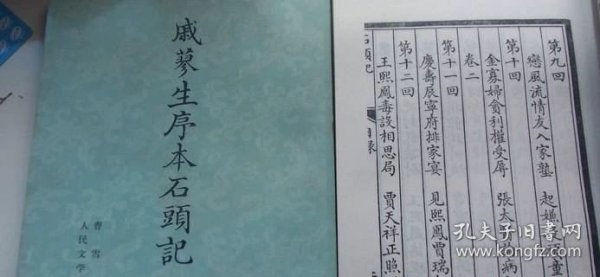 戚蓼生序本石頭記
曹雪
人民文学
第九回
戀風流情友入家塾 起嫌 童
第十回
金寡婦貪利權受辱 張太 病
卷二
第十一回
慶壽辰寧府排家宴 見熙鳳賈瑞
第十二回
王熙鳳毒設相思局 賈天祥正照
石頭記
目錄
孔夫子旧书网
www.kongfz.com